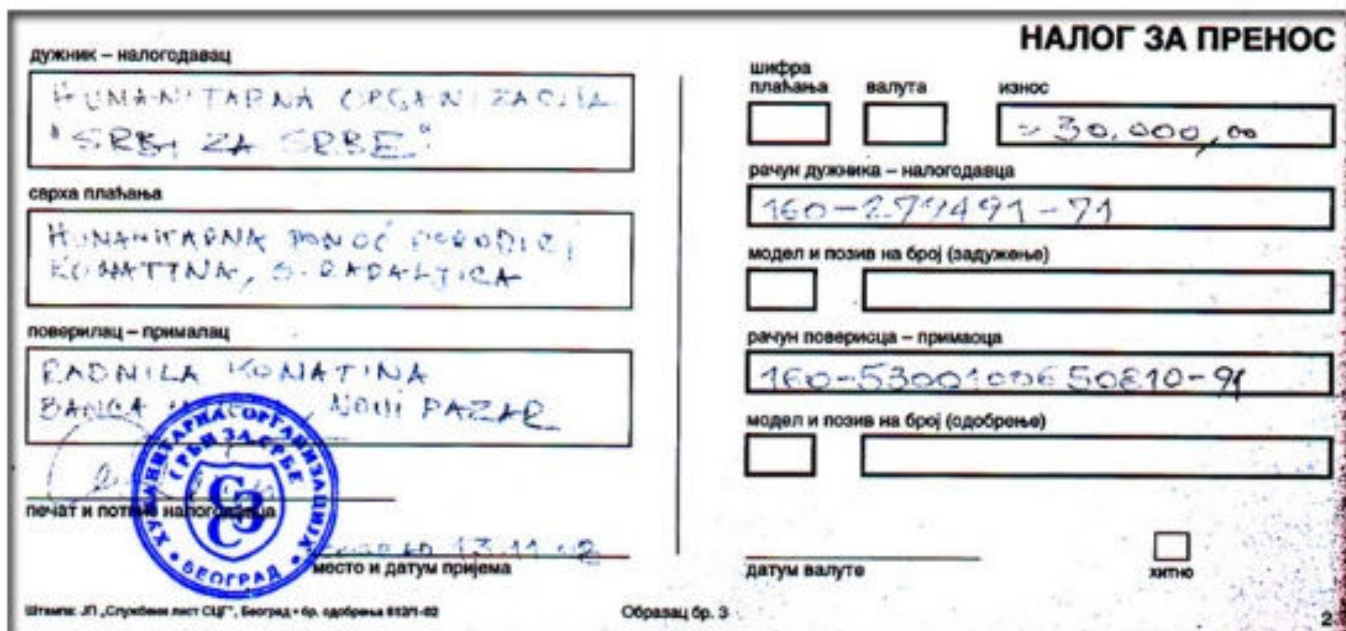 НАЛОГ ЗА ПРЕНОС
дужник – налогодавац
HUMANITARNA ORGANIZACIJA
"SRBI ZA SRBE"
сврха плаћања
HUMANITARNA POMOĆ PORODICI
KOMATINA, S. RADALJICA
поверилац – прималац
RADMILA KOMATINA
BANCA INTESA, NOVI PAZAR
ХУМАНИТАРНА ОРГАНИЗАЦИЈА
СРБИ ЗА СРБЕ
СЗС
БЕОГРАД
печат и потпис налогодавца
13.11.02
место и датум пријема
шифра плаћања
валута
износ
= 30.000,00
рачун дужника – налогодавца
160-279491-71
модел и позив на број (задужење)
рачун поверисца – примаоца
160-5300100650810-91
модел и позив на број (одобрење)
датум валуте
хитно
Штампа: ЈП „Службени лист СЦГ", Београд • бр. одобрења 612/1-02
Образац бр. 3
2